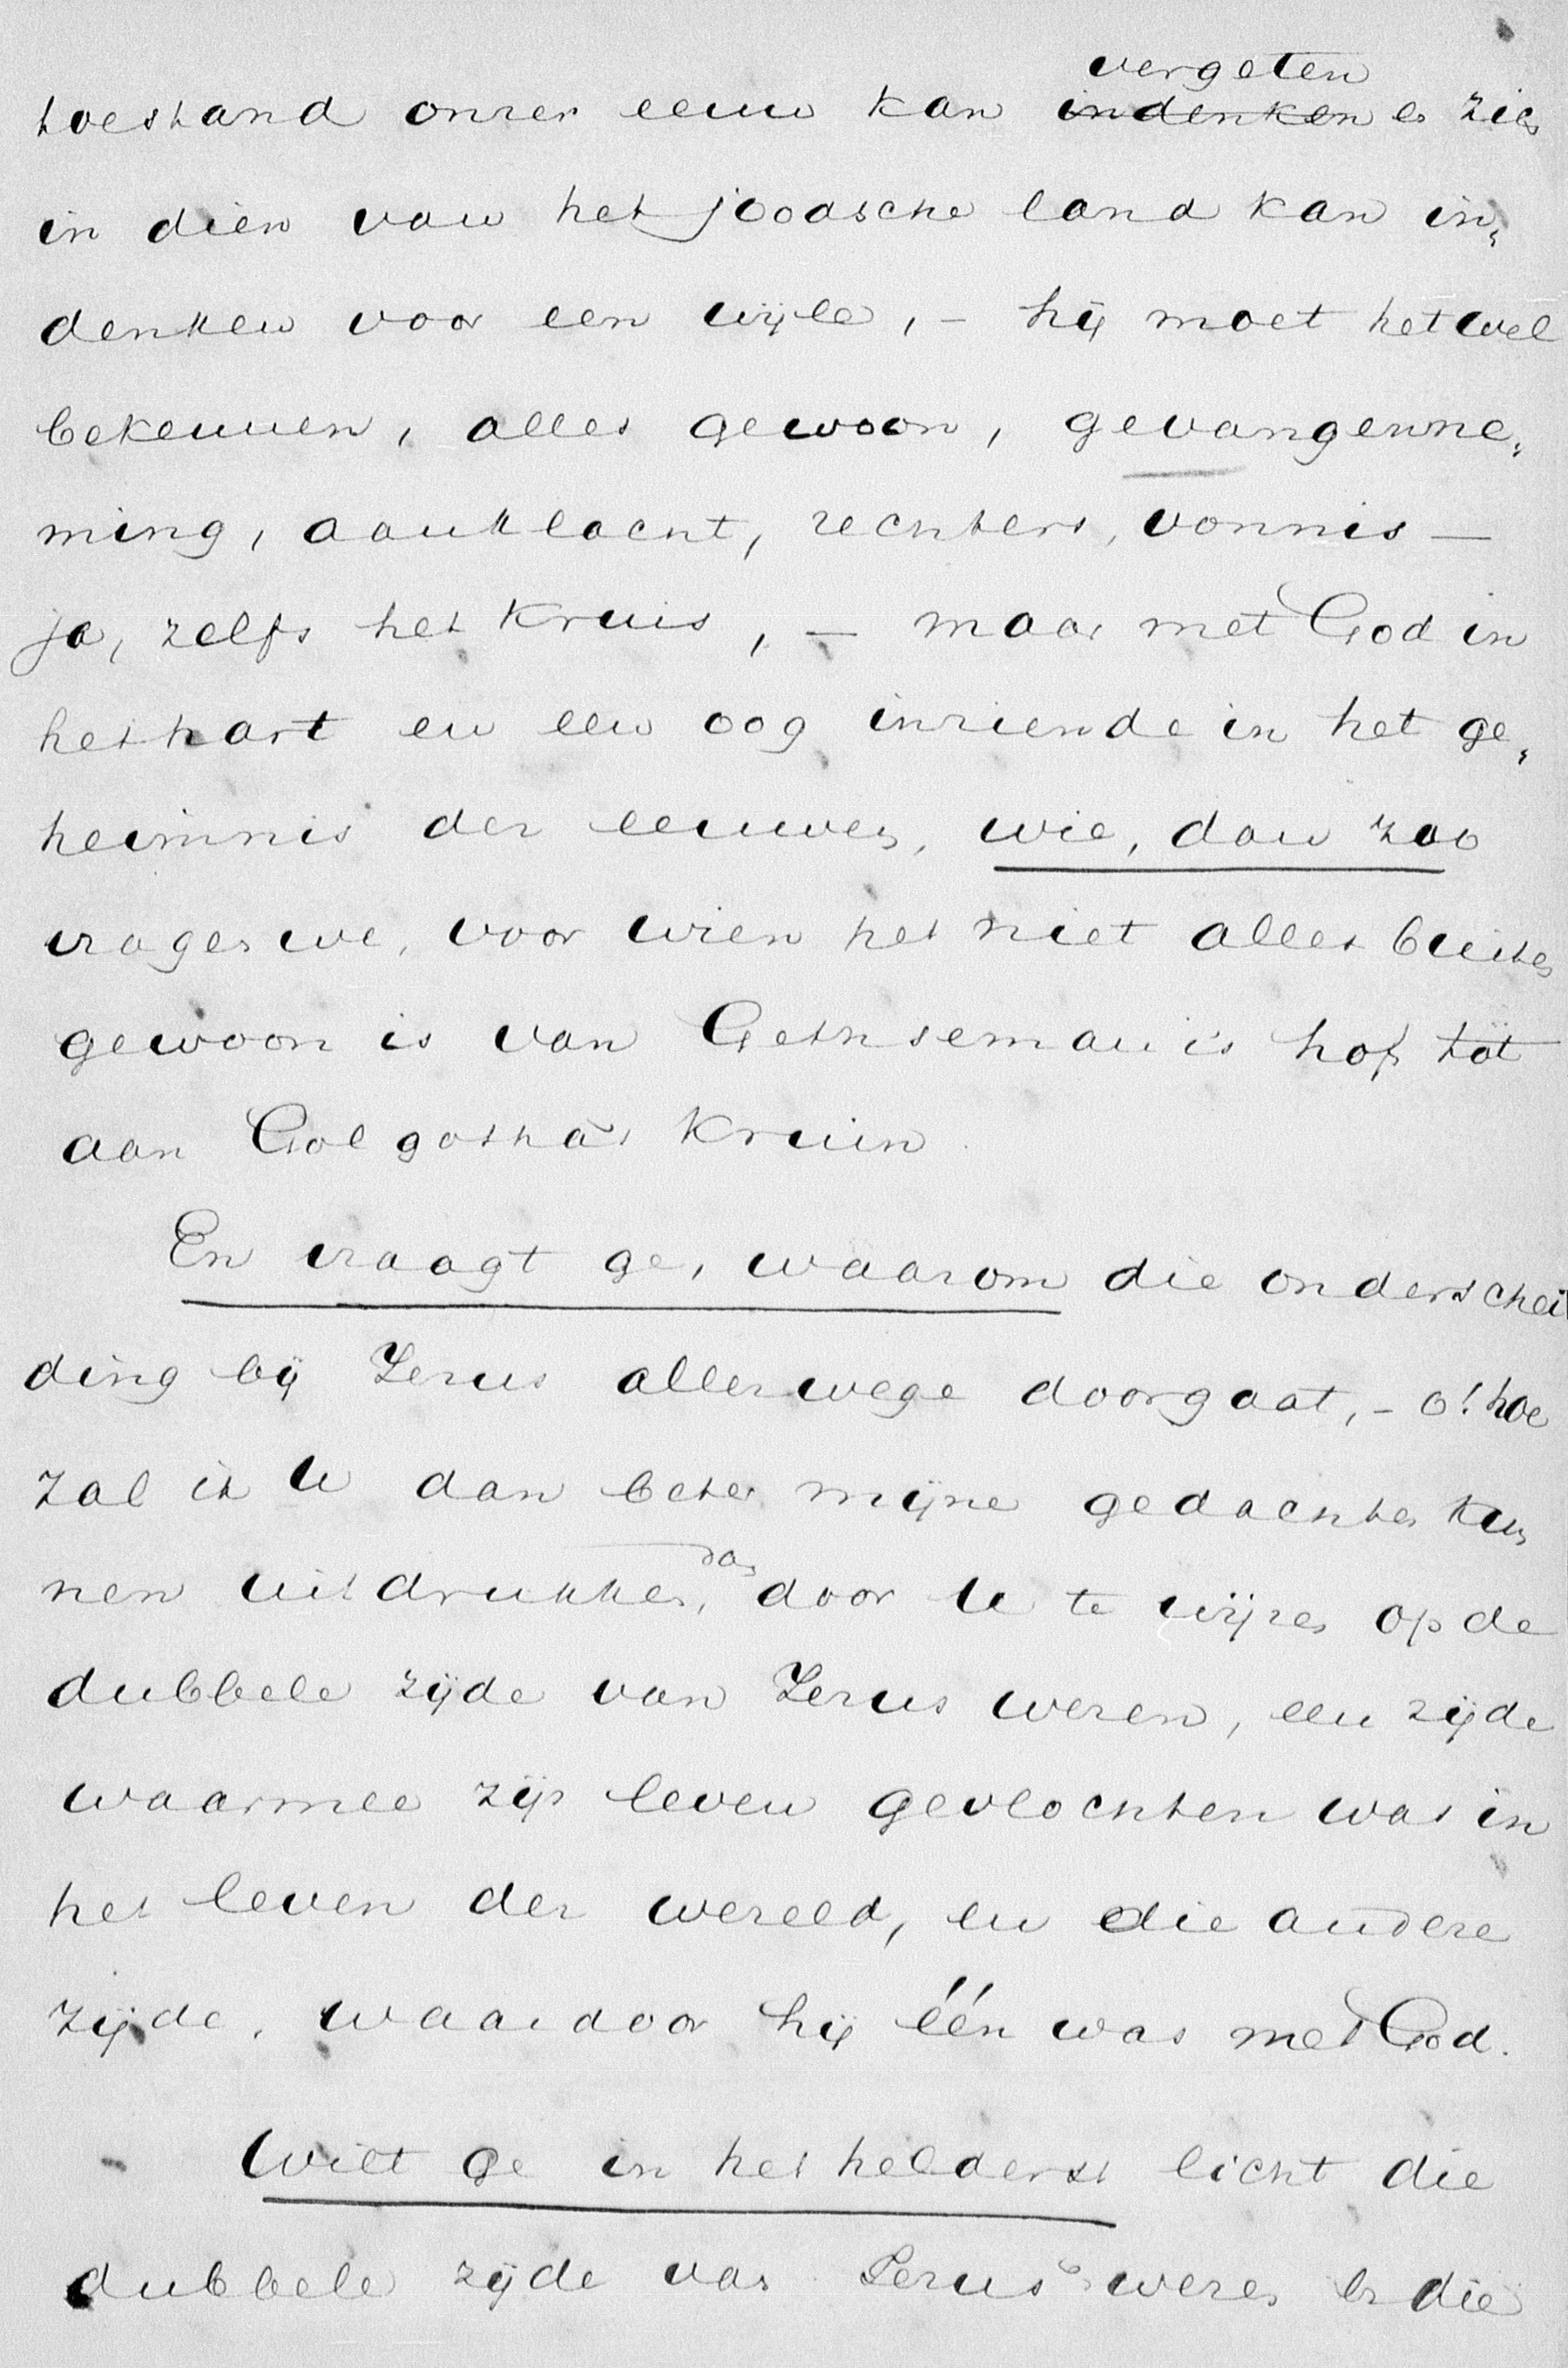 vergeten
toestand onzer eeuw kan ~~indenken~~ en zich
in dien van het joodsche land kan in„
denken voor een wijle, – hij moet het wel
bekennen, alles gewoon, gevangenne„
ming, aanklacht, rechters, vonnis –
ja, zelfs het kruis, – maar met God in
het hart en een oog inziende in het ge„
heimnis der eeuwen, wie, dan zoo
vragen we, voor wien het niet alles buiten
gewoon is van Gethsemani's hof tot
aan Golgotha's kruin.
En vraagt ge, waarom die onderschei
ding bij Jezus allerwege doorgaat, – o! hoe
zal ik U dan beter mijne gedachten kun
dan
nen uitdrukken, door U te wijzen op de
dubbele zijde van Jezus wezen, een zijde
waarmee zijn leven gevlochten was in
het leven der wereld, en die andere
zijde, waardoor hij één was met God.
Wilt ge in het helderst licht die
dubbele zijde van Jezus wezen en die